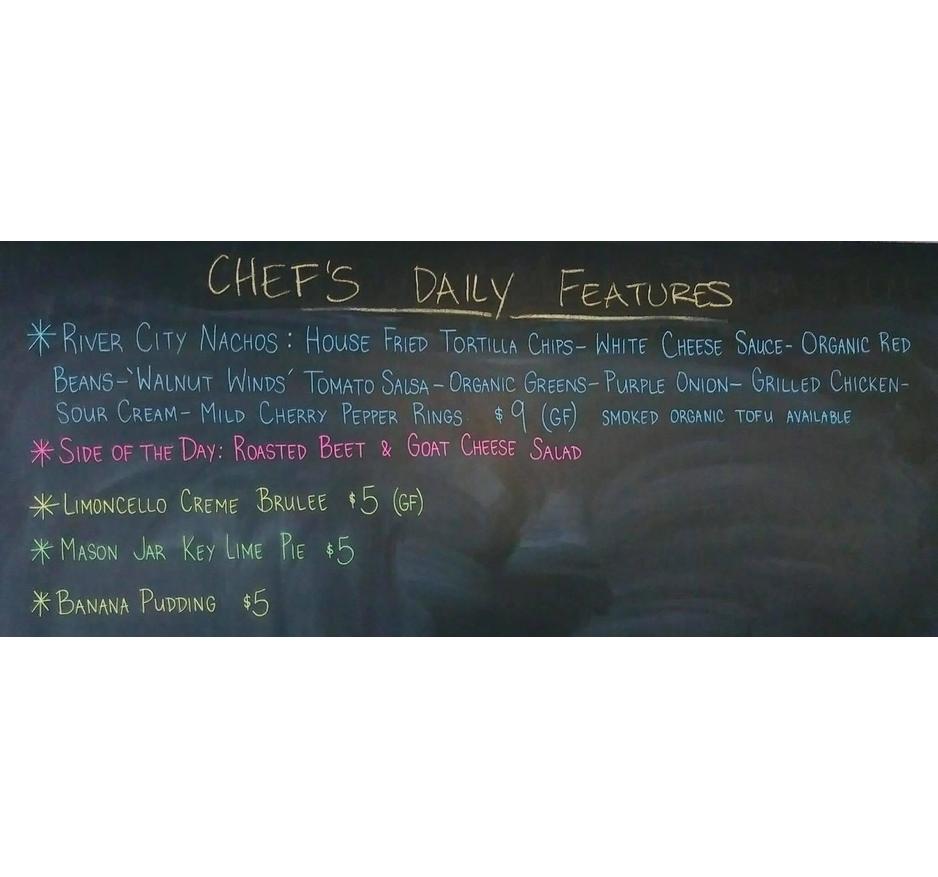 CHEF'S DAILY FEATURES
* RIVER CITY NACHOS: HOUSE FRIED TORTILLA CHIPS- WHITE CHEESE SAUCE- ORGANIC RED
BEANS-'WALNUT WINDS' TOMATO SALSA- ORGANIC GREENS- PURPLE ONION- GRILLED CHICKEN-
SOUR CREAM- MILD CHERRY PEPPER RINGS $9 (GF) SMOKED ORGANIC TOFU AVAILABLE
* SIDE OF THE DAY: ROASTED BEET & GOAT CHEESE SALAD
* LIMONCELLO CREME BRULEE $5 (GF)
* MASON JAR KEY LIME PIE $5
* BANANA PUDDING $5